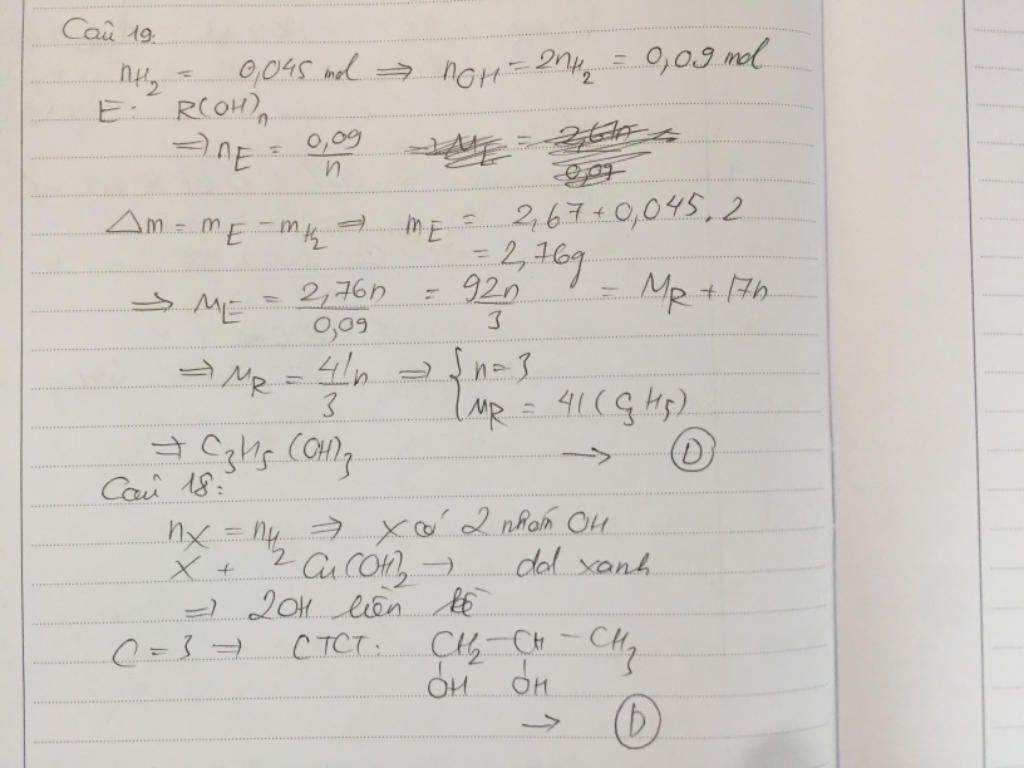 Câu 19:
nH₂ = 0,045 mol ⇒ nOH = 2nH₂ = 0,09 mol
E: R(OH)ₙ
⇒ nE = 0,09/n
Δm = mE − mH₂ ⇒ mE = 2,67 + 0,045.2
= 2,76g
⇒ ME = 2,76n/0,09 = 92n/3 = MR + 17n
⇒ MR = 41n/3 ⇒ { n = 3
MR = 41 (C₃H₅)
⇒ C₃H₅(OH)₃ → D
Câu 18:
nX = nH₂ ⇒ X có 2 nhóm OH
X + Cu(OH)₂ → dd xanh
⇒ 2OH liền kề
C = 3 ⇒ CTCT: CH₂ − CH − CH₃
OH OH
→ D